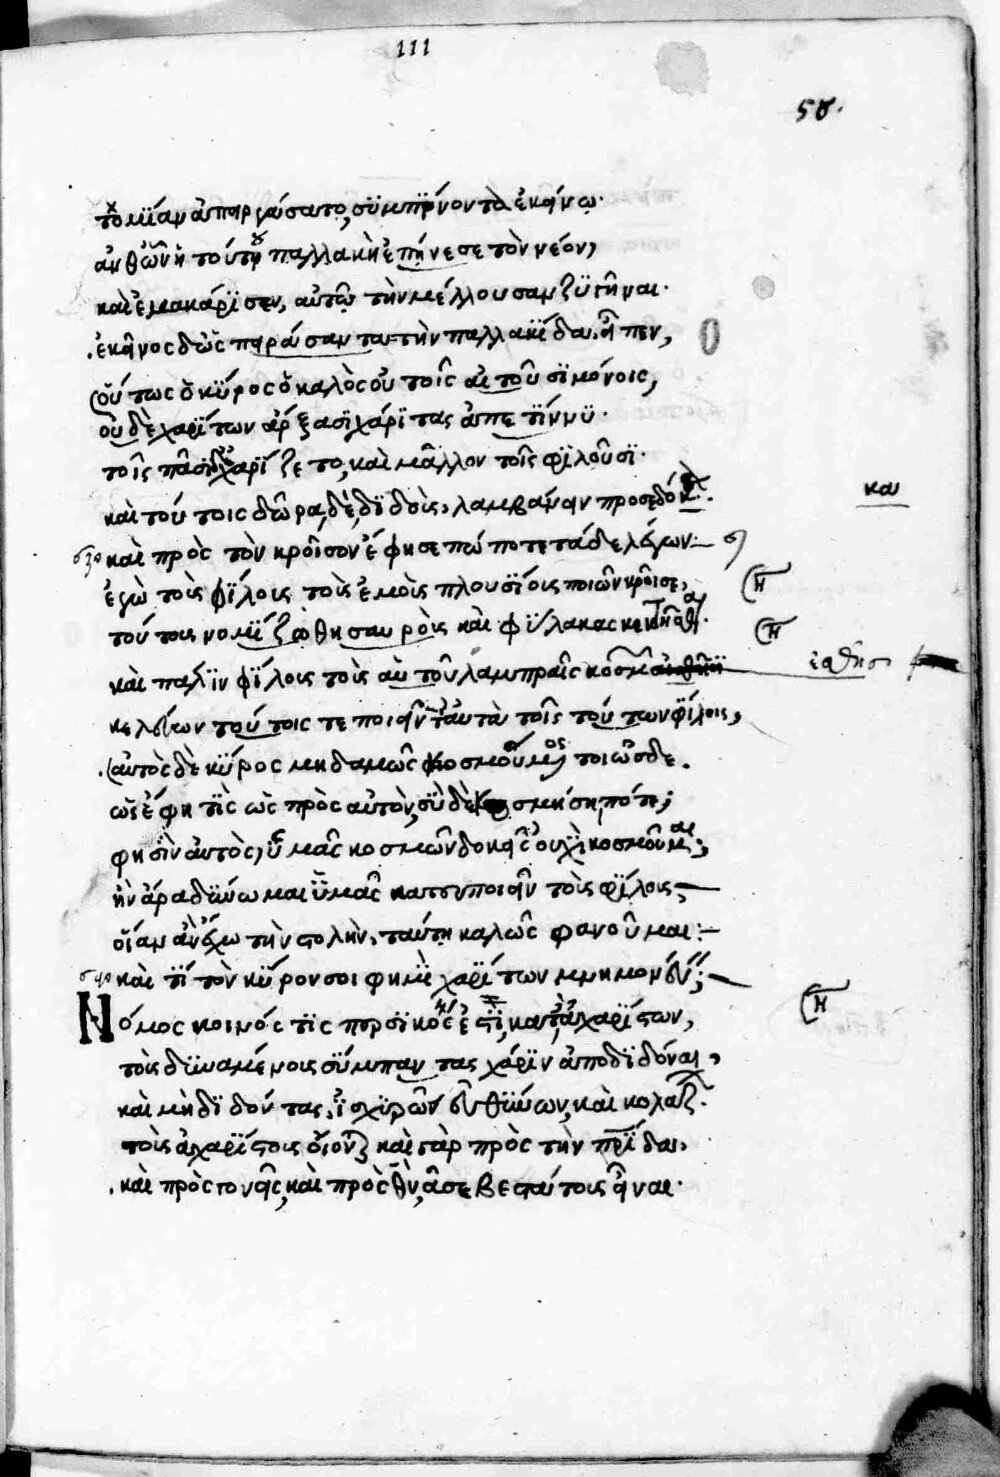 111
58.
τομίαν ἀπηργάσατο, συμπίνοντα ἐκείνῳ·
ἀνθ' ὧν ἡ τούτου παλλακὴ ἐπῄνεσε τὸν νέον,
καὶ ἐμακάρισεν, αὐτῷ τὴν μέλλουσαν ζυγῆναι·
ἐκεῖνος δ' ὡς παροῦσαν τὴν παλλακίδα εἶπεν,
οὕτως ὁ κῦρος ὁ καλὸς οὐ τοῖς αὐτοῦ σι μόνοις,
οὐδὲ χαρίτων ἄρξασι χάριτας ἀπετίννυ·
τοῖς πᾶσι δ' ἐχαρίζετο, καὶ μᾶλλον τοῖς φιλοῦσι·
καὶ τούτοις δῶρα δὲ διδοὺς, λαμβάνειν προσεδόκα·
και
καὶ πρὸς τὸν κροῖσον ἔφησε πώποτε τάδε λέγων:
ἐγὼ τοὺς φίλους τοὺς ἐμοὺς πλουσίους ποιῶν κροῖσε,
τούτους νομίζω θησαυροὺς καὶ φύλακας κεκτῆσθαι·
καὶ πάλιν φίλοις τοῖς αὐτοῦ λαμπραῖς κοσμεῖ
ἐσθῆσι
κελεύων τούτοις τε ποιεῖν ταυτὰ τοῖς τούτων φίλοις,
αὐτὸς δὲ κῦρος μηδαμῶς κοσμούμενος τοιῶσδε.
ὡς ἔφη τὶς ὡς πρὸς αὐτὸν, σὺ δὲ κοσμήσῃ πότε;
φησὶν αὐτὸς, ὑμᾶς κοσμῶν δοκεῖς οὐχὶ κοσμοῦμαι;
ἢν ἄρα δύνωμαι ὑμᾶς κατευποιεῖν τοὺς φίλους
οἵαν ἂν ἔχω τὴν στολὴν, ταύτῃ καλῶς φανοῦμαι:
καὶ τί τὸν κῦρον σοι φημὶ χαρίτων μνημονεύειν;
Νόμος κοινός τις περσικός ἐστι, κατὰ ἀχαρίστων,
τοὺς δυναμένους σύμπαντας χάριν ἀποδιδόναι,
καὶ μὴ διδόντας, ἰσχυρῶν εὐθύνων, καὶ κολάζειν.
τοὺς ἀχαρίστους οἴονται καὶ γὰρ πρὸς τὴν πατρίδα,
καὶ πρὸς γονεῖς, καὶ πρὸς θεὸν, ἀσεβεστάτους εἶναι·